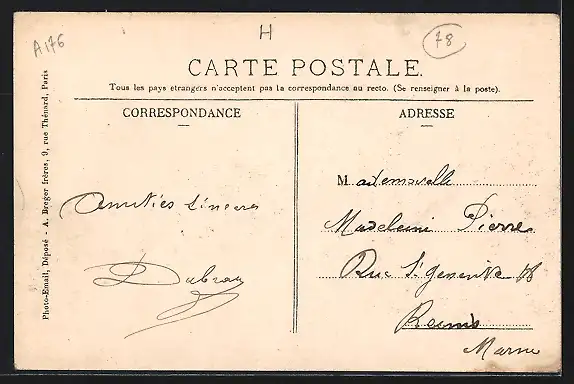 A176
H
78
CARTE POSTALE.
Tous les pays etrangers n'acceptent pas la correspondance au recto. (Se renseigner à la poste).
CORRESPONDANCE
ADRESSE
Photo-Email, Déposé - A. Breger frères, 9, rue Thénard, Paris
Amitiés Sincères
Mademoiselle
Madeleine Pierre
Rue St Geneviève
Reims
Marne